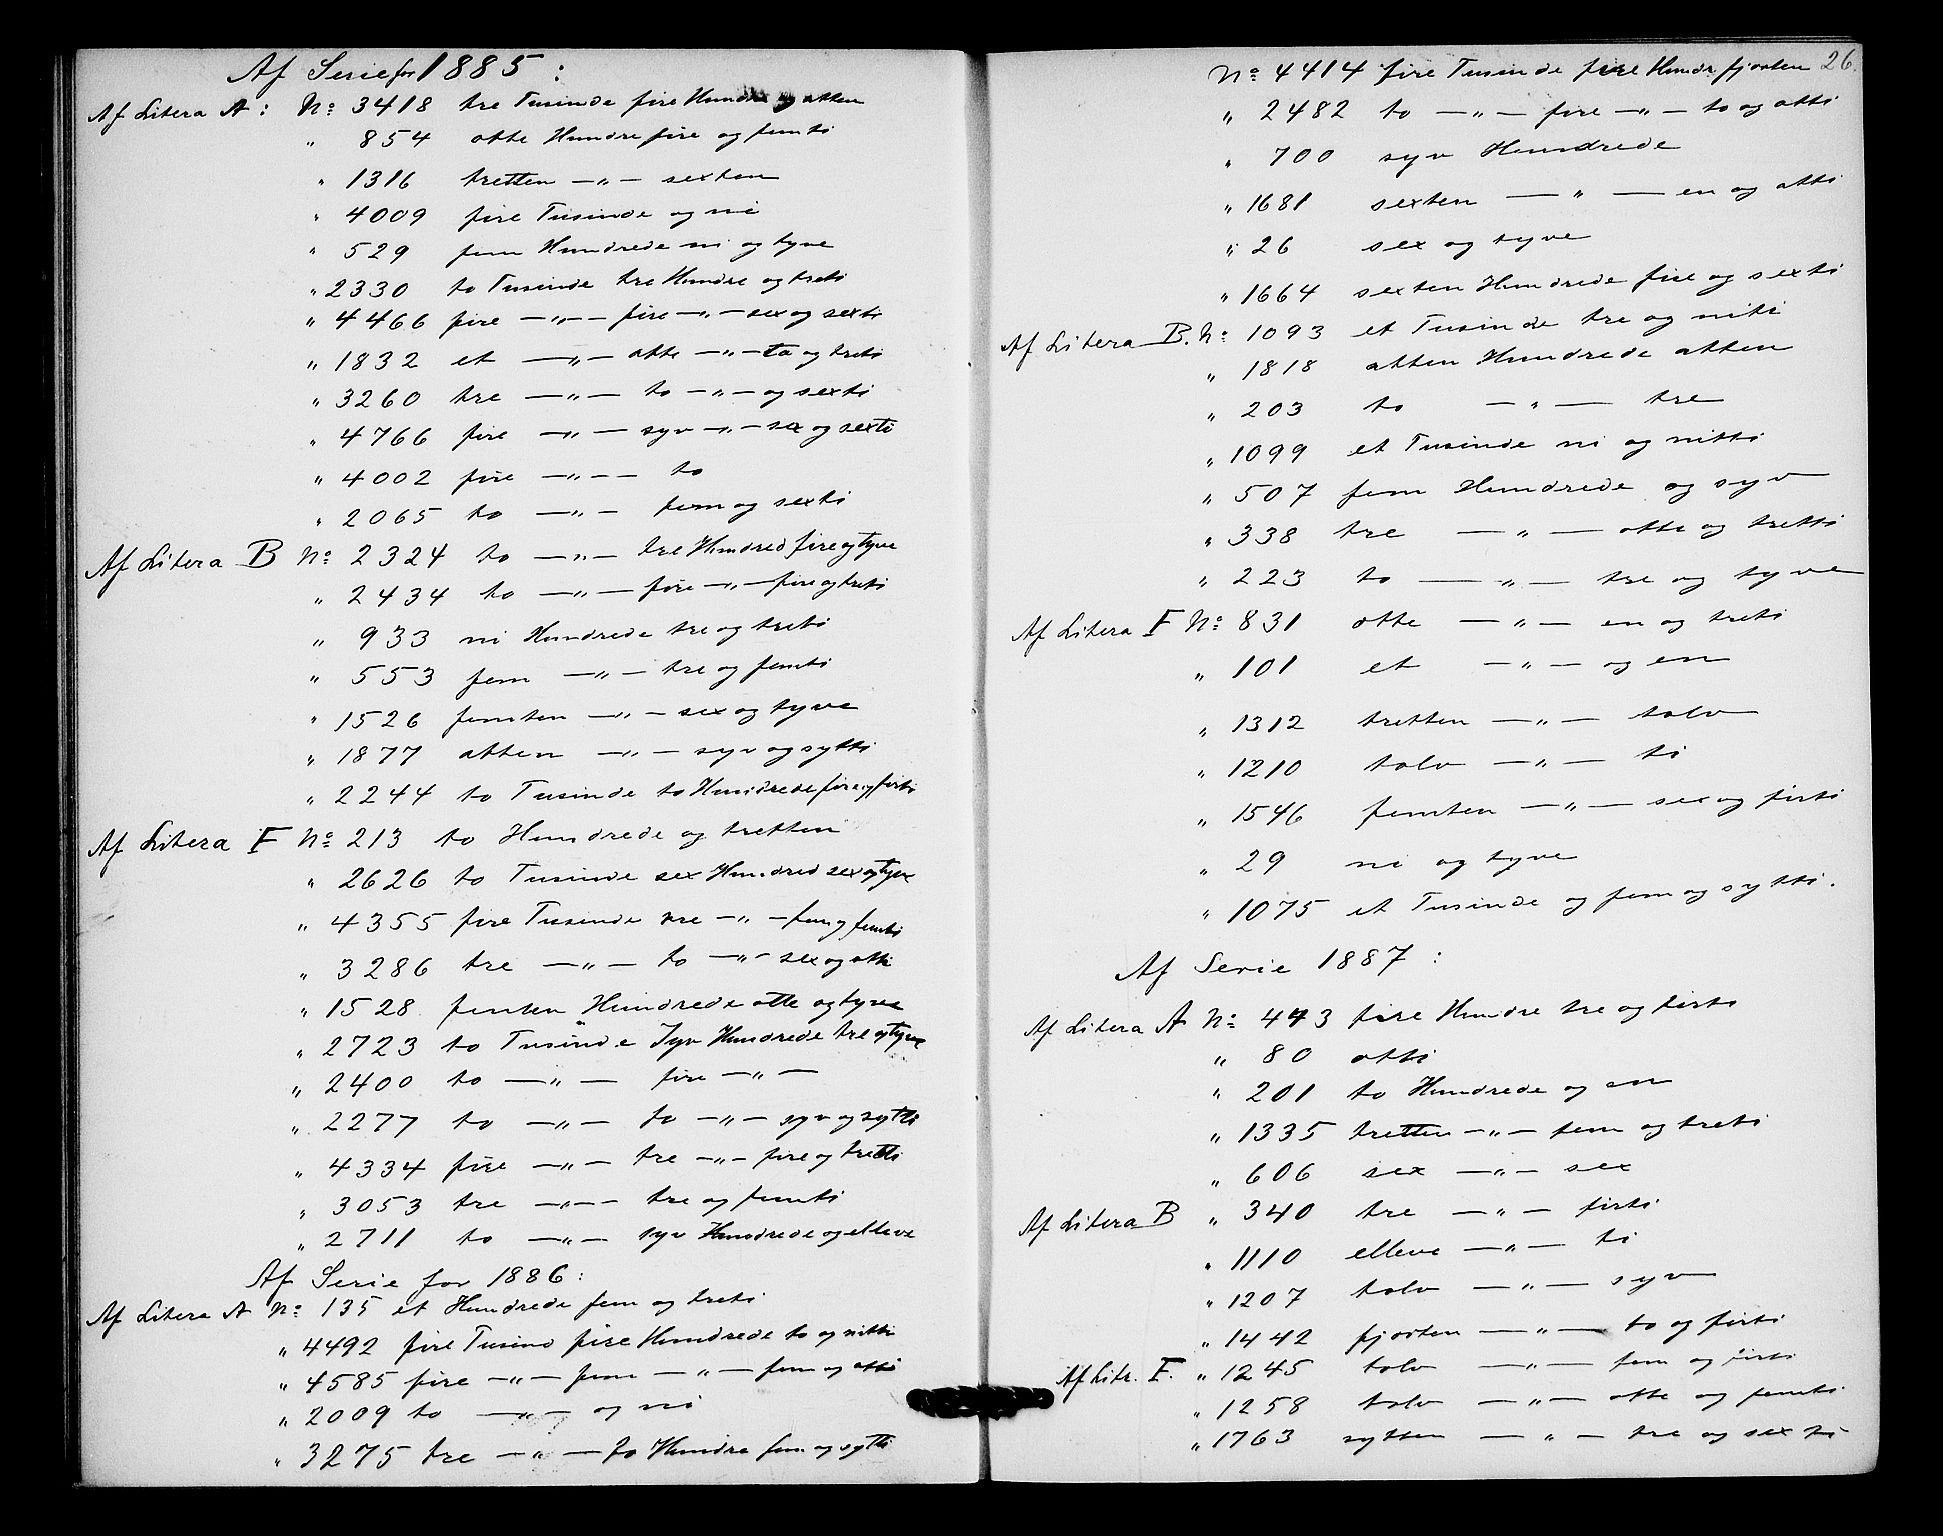 Af Serie for 1885 :
Af Litera A : No 3418 tre Tusinde fire Hundre og atten
" 854 otte Hundre fire og femti
" 1316 tretten —"— sexten
" 4009 fire Tusinde og ni
" 529 fem Hundrede ni og tyve
" 2330 to Tusinde tre Hundre og treti
" 4466 fire —"— fire —"— sex og sexti
" 1832 et —"— otte —"— to og treti
" 3260 tre —"— to —"— og sexti
" 4766 fire —"— syv —"— sex og sexti
" 4002 fire —"— to
" 2065 to —"— fem og sexti
Af Litera B No 2324 to —"— tre Hundred fire og tyve
" 2434 to —"— fire —"— fire og treti
" 933 ni Hundrede tre og treti
" 553 fem —"— tre og femti
" 1526 femten —"— sex og tyve
" 1877 atten —"— syv og sytti
" 2244 to Tusinde to Hundrede fire og firti
Af Litera F No 213 to Hundrede og tretten
" 2626 to Tusinde sex Hundred sex og tyve
" 4355 fire Tusinde tre —"— fem og femti
" 3286 tre —"— to —"— sex og otti
" 1528 femten Hundrede otte og tyve
" 2723 to Tusinde Syv Hundrede tre og tyve
" 2400 to —"— fire —"—
" 2277 to —"— to —"— syv og sytti
" 4334 fire —"— tre —"— fire og tretti
" 3053 tre —"— tre og femti
" 2711 to —"— syv Hundrede og elleve
Af Serie for 1886 :
Af Litera A No 135 et Hundrede fem og treti
" 4492 fire Tusind fire Hundrede to og nitti
" 4585 fire —"— fem —"— fem og otti
" 2009 to —"— og ni
" 3275 tre —"— to Hundre fem og sytti
No 4414 fire Tusinde fire Hundr fjorten 26.
" 2482 to —"— fire —"— to og otti
" 700 syv Hundrede
" 1681 sexten —"— en og otti
" 26 sex og tyve
" 1664 sexten Hundrede fire og sexti
Af Litera B. No 1093 et Tusinde tre og niti
" 1818 atten Hundrede atten
" 203 to —"— tre
" 1099 et Tusinde ni og nitti
" 507 fem Hundrede og syv
" 338 tre —"— otte og tretti
" 223 to —"— tre og tyve
Af Litera F No 831 otte —"— en og treti
" 101 et —"— og en
" 1312 tretten —"— tolv
" 1210 tolv —"— ti
" 1546 femten —"— sex og firti
" 29 ni og tyve
" 1075 et Tusinde og fem og sytti.
Af Serie 1887 :
Af Litera A No 443 fire Hundre tre og firti
" 80 otti
" 201 to Hundrede og en
" 1335 tretten —"— fem og treti
" 606 sex —"— sex
Af Litera B " 340 tre —"— firti
" 1110 elleve —"— ti
" 1207 tolv —"— syv
" 1442 fjorten —"— to og firti
Af Litr. F. " 1245 tolv —"— fem og firti
" 1258 tolv —"— otte og femti
" 1763 sytten —"— tre og sexti